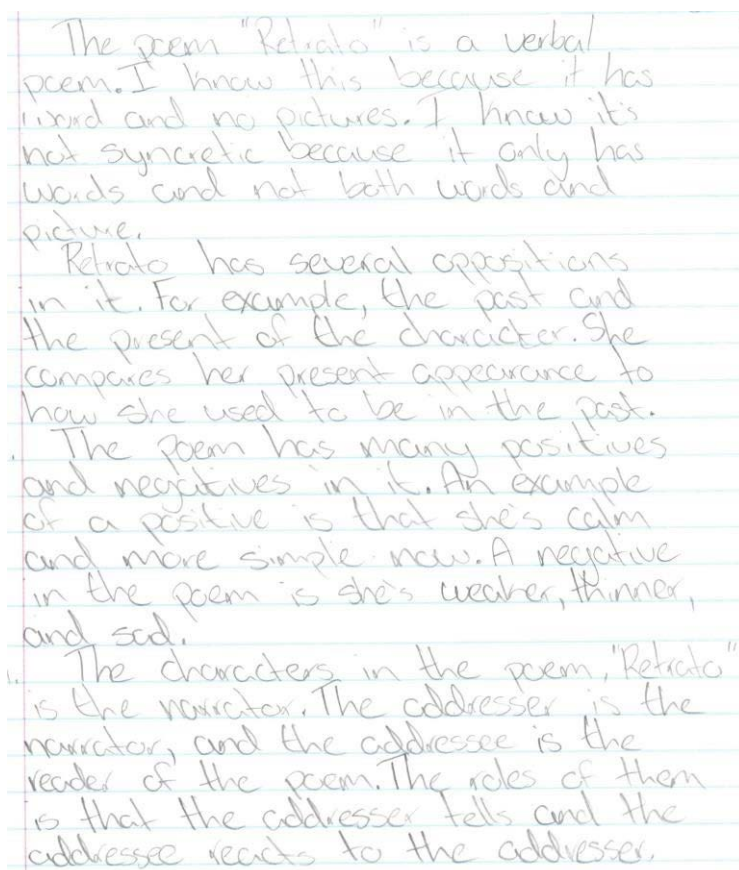 The poem "Retrato" is a verbal
poem. I know this because it has
word and no pictures. I know it's
not syncretic because it only has
words and not both words and
picture.
Retrato has several oppositions
in it. For example, the past and
the present of the character. She
compares her present appearance to
how she used to be in the past.
The poem has many positives
and negatives in it. An example
of a positive is that she's calm
and more simple now. A negative
in the poem is she's weaker, thinner,
and sad.
The characters in the poem, "Retrato"
is the narrator. The addresser is the
narrator, and the addressee is the
reader of the poem. The roles of them
is that the addresser tells and the
addressee reacts to the addresser.